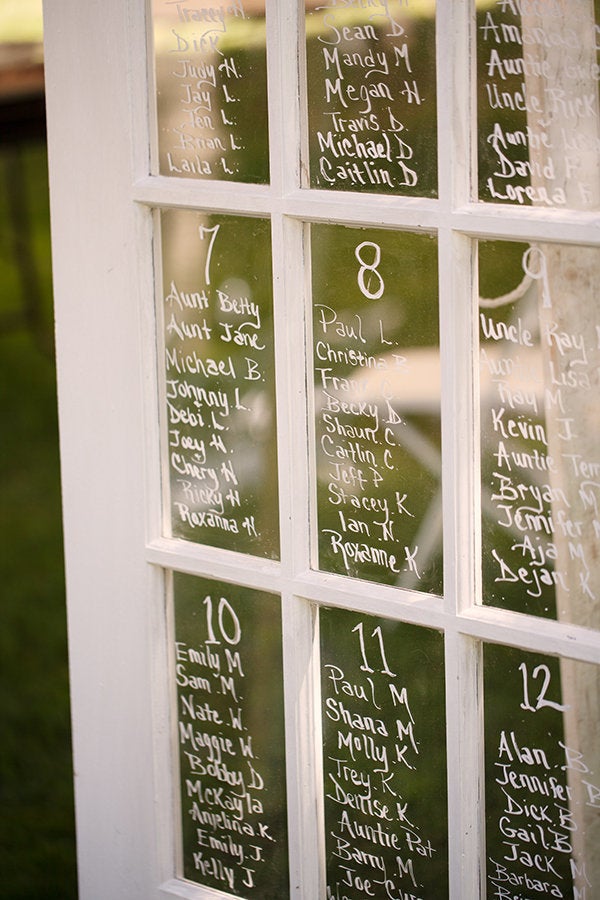 Tracey H.
Dick
Judy H.
Jay L.
Jen L.
Brian L.
Laila L.
Becky D.
Sean D.
Mandy M
Megan H.
Travis D.
Michael D.
Caitlin D
Alex
Amanda
Auntie
Uncle Rick
Auntie
David F.
Lorena
7
Aunt Betty
Aunt Jane
Michael B.
Johnny L.
Debi L.
Joey H.
Chery H
Ricky H
Roxanna H.
8
Paul L.
Christina B
Becky D.
Shaun C.
Caitlin C
Jeff P
Stacey K
Ian N.
Roxanne K
9
Uncle Ray
Aunt Lisa
Ray M
Kevin J
Auntie
Bryan M
Jennifer M
Aja M
Dejan K
10
Emily M
Sam M.
Nate W.
Maggie W.
Bobby D.
McKayla
Anjelina K
Emily J.
Kelly J
11
Paul M
Shana M.
Molly K.
Trey K.
Denise K.
Auntie Pat
Barry M.
Joe
12
Alan B.
Jennifer B.
Dick B.
Gail B.
Jack M
Barbara M